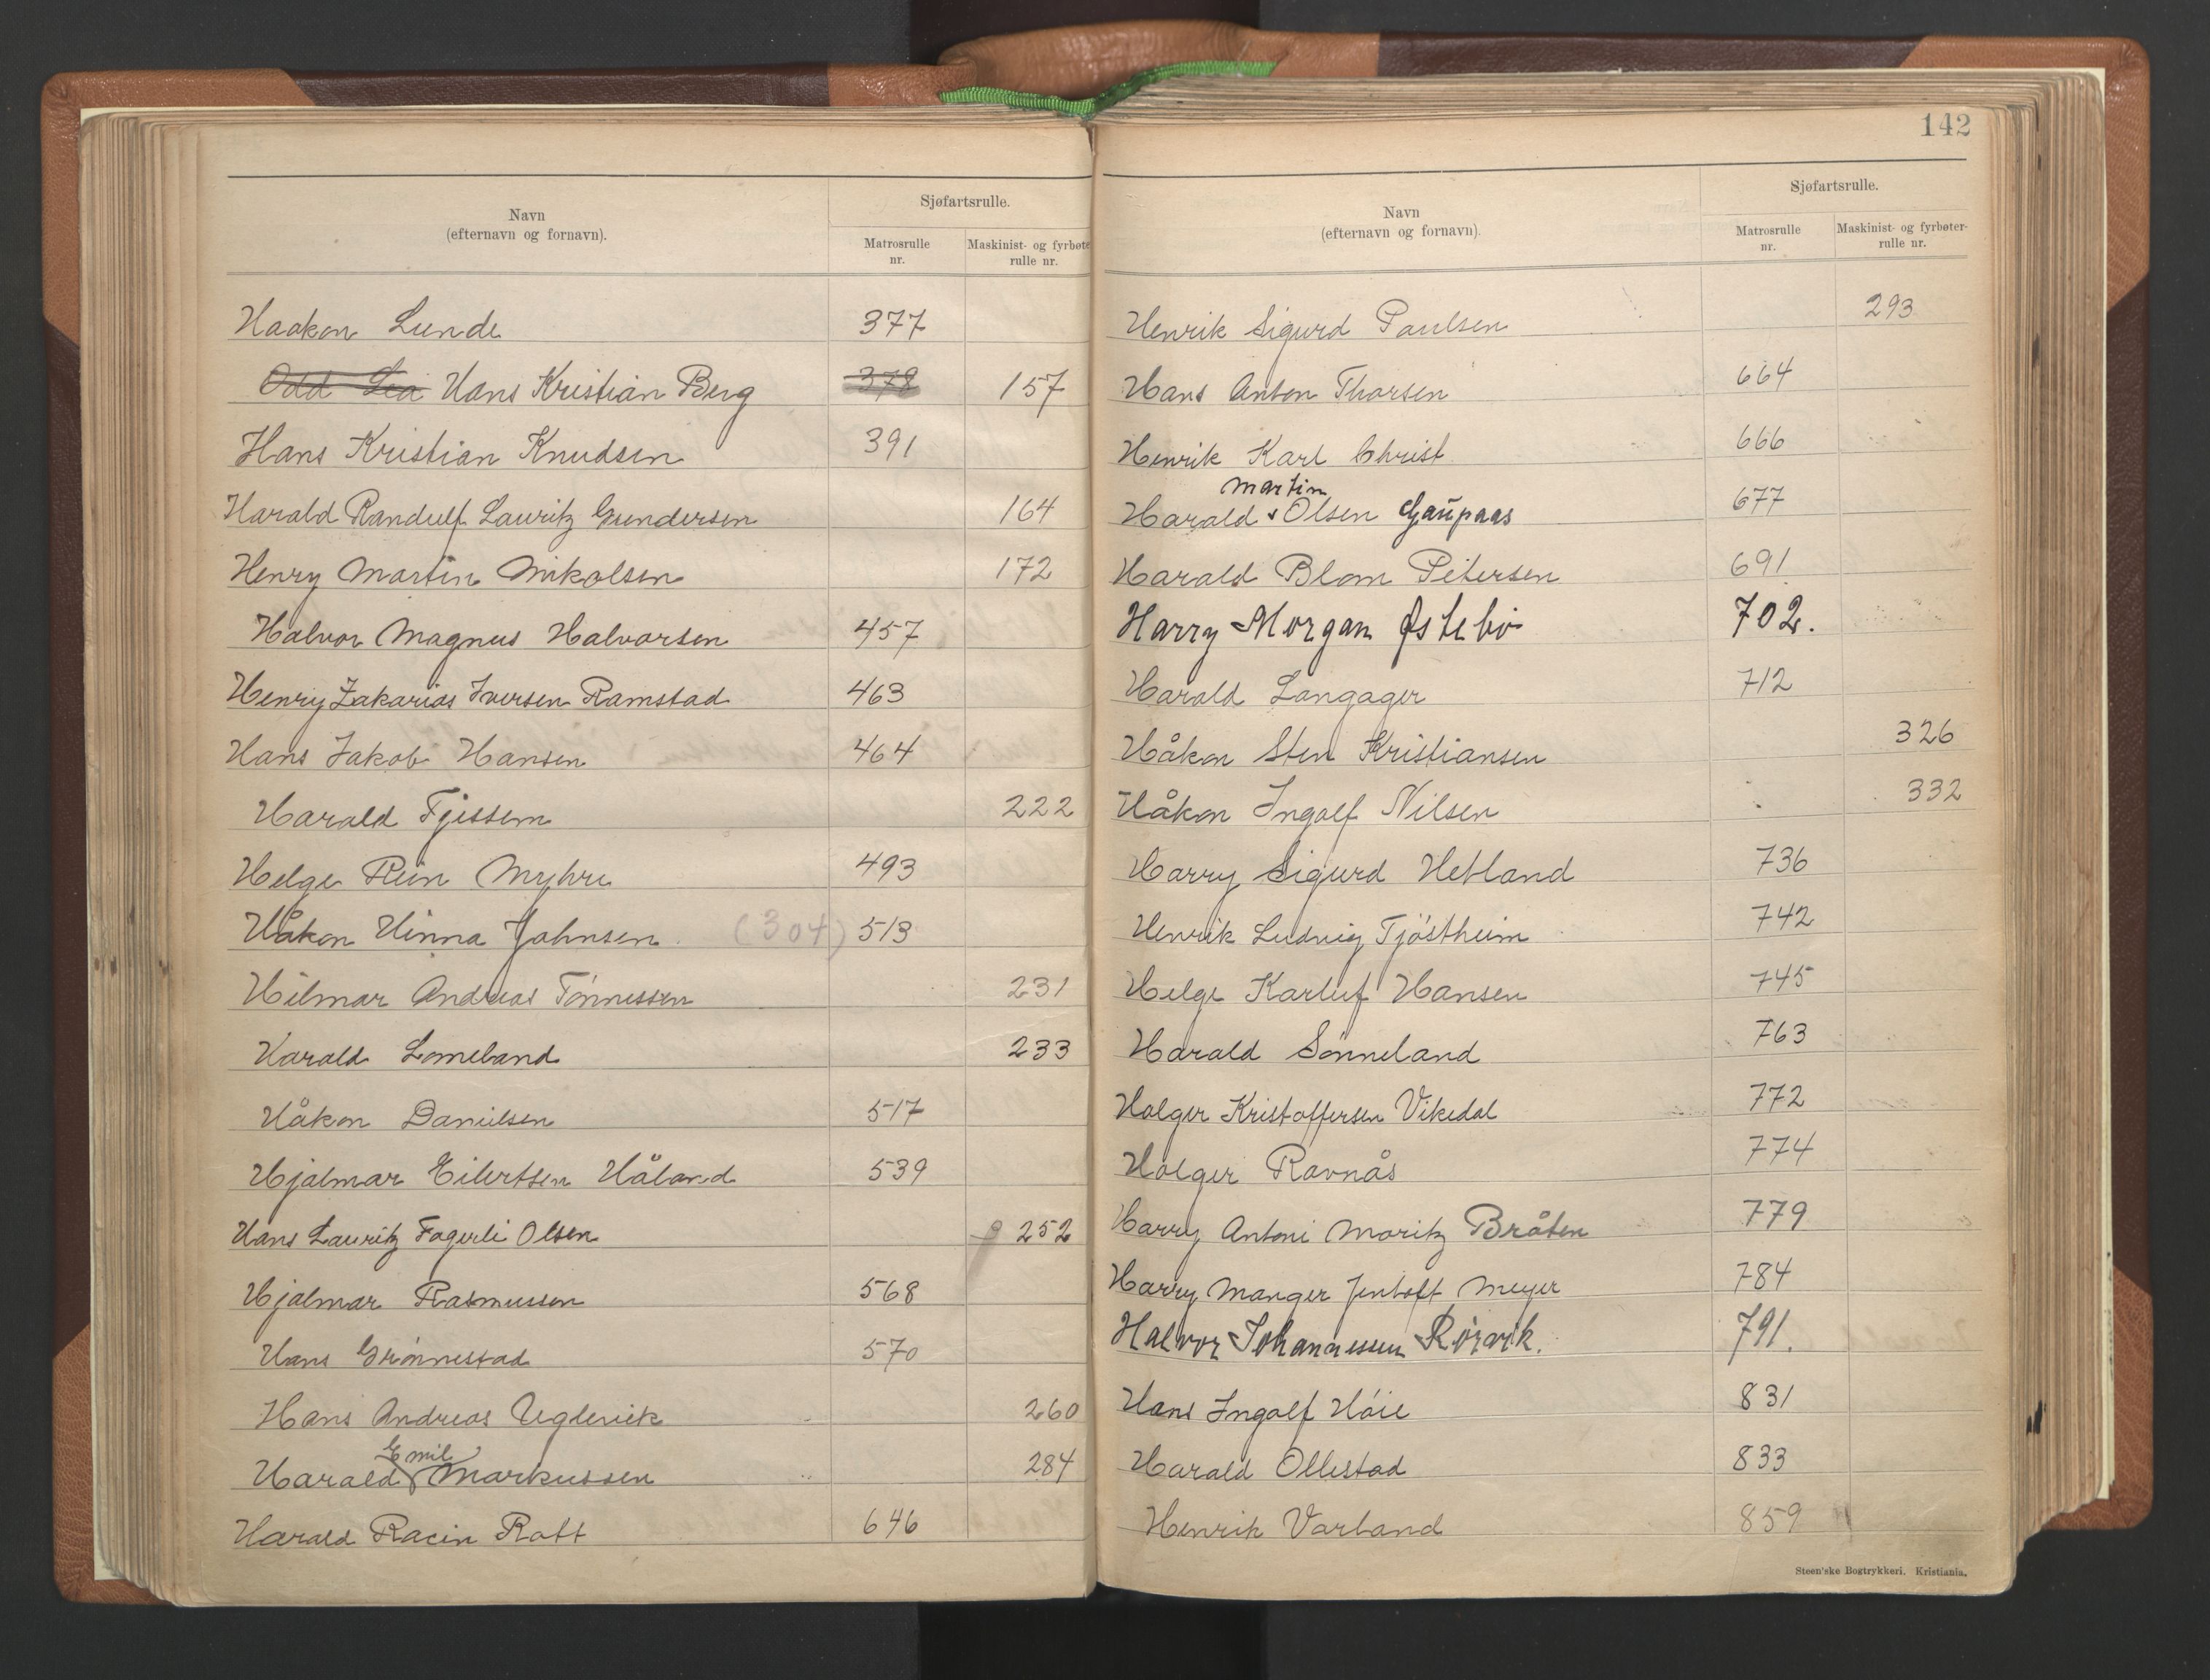 Navn
(efternavn og fornavn).
Sjøfartsrulle.
Matrosrulle nr.
Maskinist- og fyrbøte
rulle nr.
Haakon Lunde 377
Odd Lea Hans Kristian Berg 378 157
Hans Kristian Knudsen 391
Harald Randulf Lauritz Gundersen 164
Henry Martin Mikalsen 172
Halvor Magnus Halvorsen 457
Henry Zakarias Iversen Ramstad 463
Hans Jakob Hansen 464
Harald Tjessem 222
Helge Rein Myhre 493
Håkon Hinna Johnsen (304) 513
Hilmar Andreas Tönnessen 231
Harald Lomeland 233
Håkon Danielsen 517
Hjalmar Eilertsen Håland 539
Hans Lauritz Fagerli Olsen 252
Hjalmar Rasmussen 568
Hans Grönnestad 570
Hans Andreas Uglevik 260
Emil
Harald Markussen 284
Harald Racin Rott 646
142
Navn
(efternavn og fornavn).
Sjøfartsrulle.
Matrosrulle nr.
Maskinist- og fyrbøter-
rulle nr.
Henrik Sigurd Paulsen 293
Hans Anton Thorsen 664
Henrik Karl Christ 666
Martin
Harald Olsen Gaupaas 677
Harald Blom Petersen 691
Harry Morgan Østebø 702.
Harald Langager 712
Håkon Sten Kristiansen 326
Håkon Ingolf Nilsen 332
Harry Sigurd Hetland 736
Henrik Ludvig Tjöstheim 742
Helge Karluf Hansen 745
Harald Sönneland 763
Holger Kristoffersen Vikedal 772
Holger Ravnås 774
Harry Antoni Moritz Bråten 779
Harry Manger Jentoft Meyer 784
Halvor Johannessen Rörvik. 791.
Hans Ingolf Höie 831
Harald Ollestad 833
Henrik Varland 859
Steen'ske Bogtrykkeri. Kristiania.